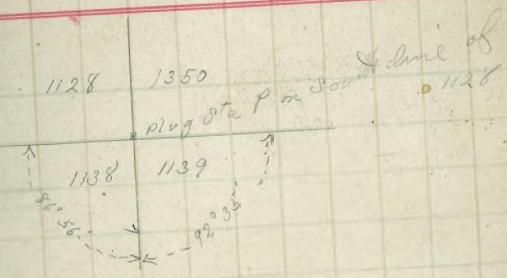 1128 1350
Plug Sta P on South line of
1128
1138 1139
86° 56'
92° 35'